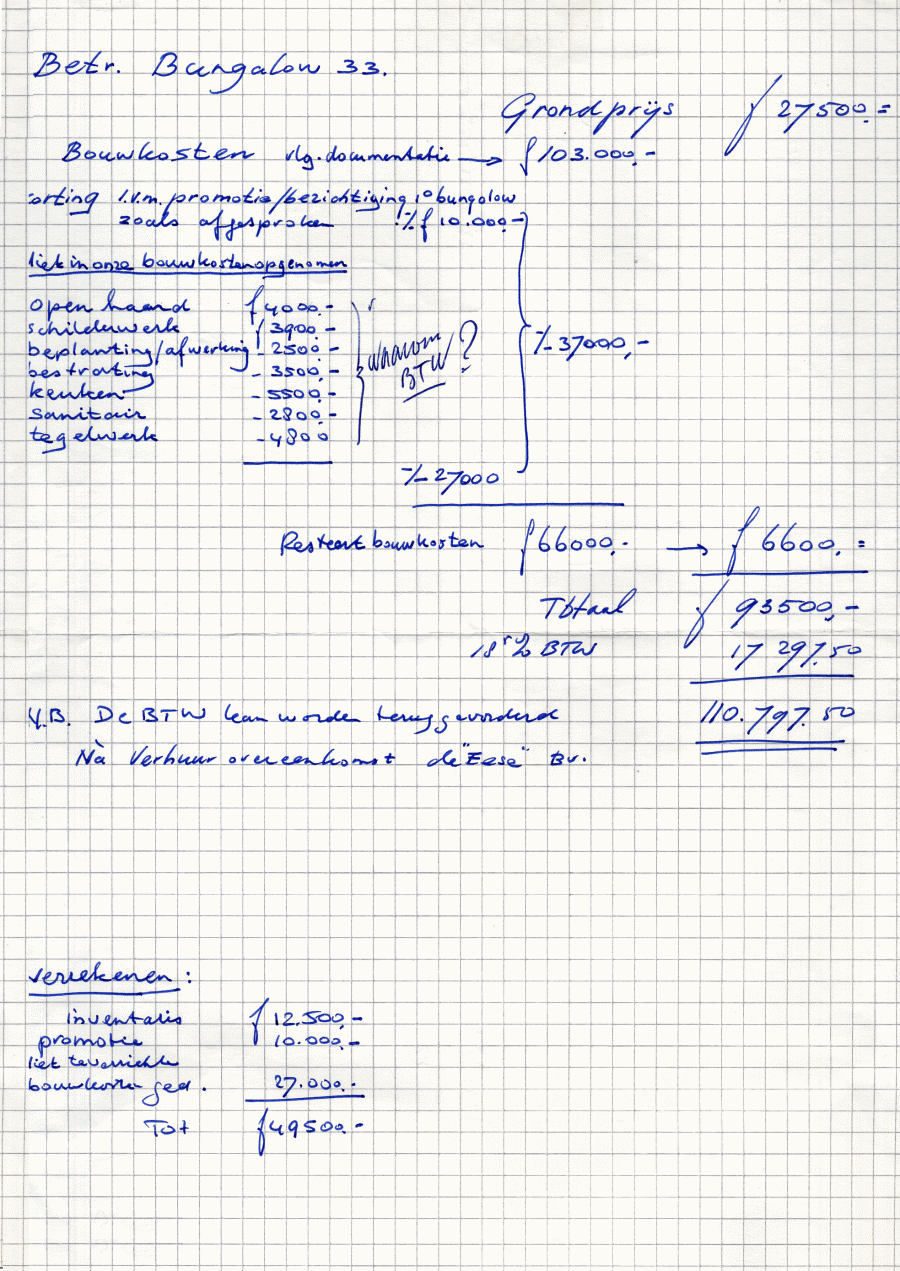 Betr. Bungalow 33.
Grondprijs ƒ 27500.=
Bouwkosten vlg. documentatie → ƒ 103.000,-
orting i.v.m. promotie/bezichtiging 1e bungalow
zoals afgesproken ·/. ƒ 10.000,-
iet in onze bouwkosten opgenomen
open haard ƒ 4000.-
schilderwerk ƒ 3900-
beplanting/afwerking - 2500.-
bestrating - 3500.-
keuken - 5500.-
sanitair - 2800.-
tegelwerk - 4800
waarom BTW?
·/. 37000,-
·/. 27000
Resteert bouwkosten ƒ 66000,- → ƒ 6600.=
Totaal ƒ 93500,-
18 % BTW 17 297.50
N.B. De BTW kan worden teruggevorderd 110.797.50
Nà Verhuurovereenkomst de "Eese" Bv.
verrekenen:
inventaris ƒ 12.500,-
promotie 10.000,-
iet te verrichte
bouwkosten ged. 27.000.-
Tot ƒ 49500.-